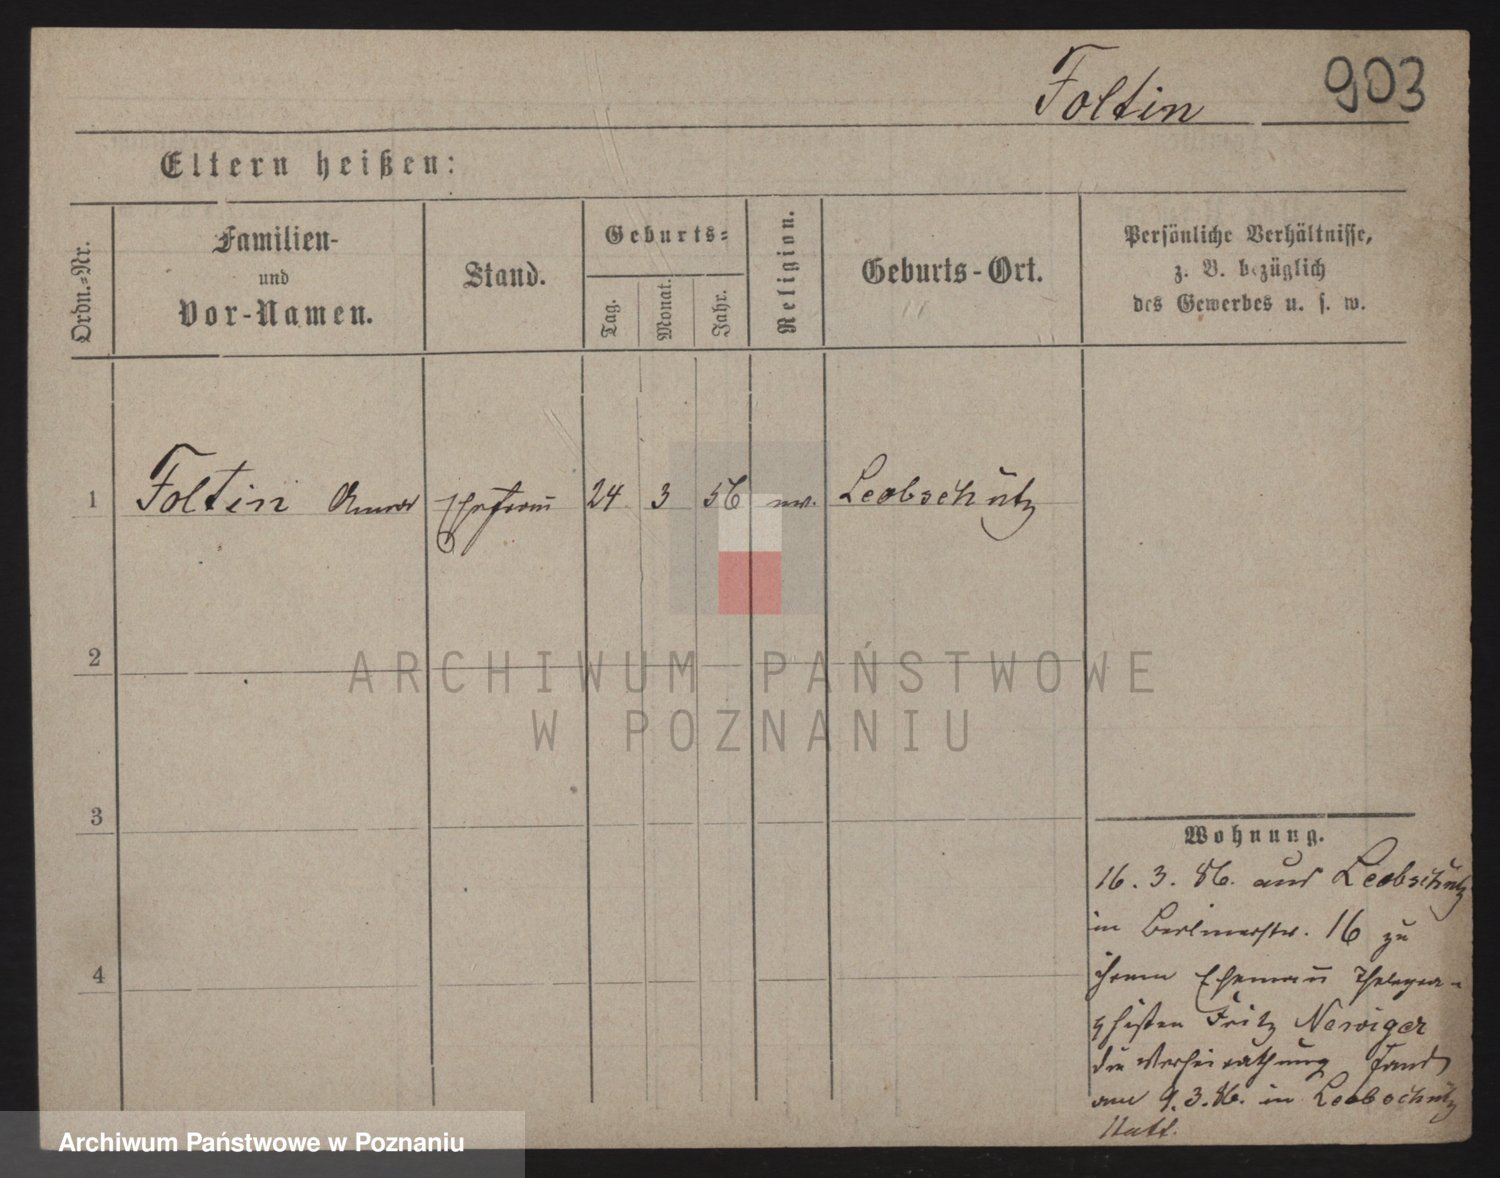 Foltin 903
Eltern heißen:
Ordn.-Nr.
Familien-
und
Vor-Namen.
Stand.
Geburts-
Tag.
Monat.
Jahr.
Religion.
Geburts-Ort.
Persönliche Verhältnisse,
z. B. bezüglich
des Gewerbes u. s. w.
1 Foltin Anna Ehefrau 24 3 56 ev. Leobschütz
2
3
4
Wohnung.
16. 3. 86. aus Leobschütz
in Berlinerstr. 16 zu
ihrem Ehemann Thelegra-
phisten Fritz Nerviger
die Verheirathung fand
am 9. 3. 86. in Leobschütz
statt.
ARCHIWUM PAŃSTWOWE
W POZNANIU
Archiwum Państwowe w Poznaniu